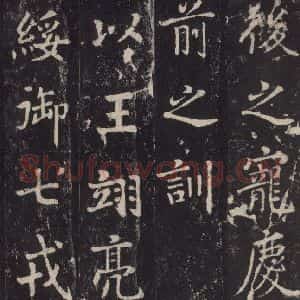 後之寵慶
前之訓
以王翊亮
綏御七戎
Shufawang.Cn